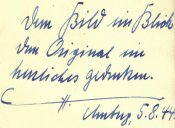 Dem Bild im Blick
dem Original im
herzliches gedenken.
5.8.44.